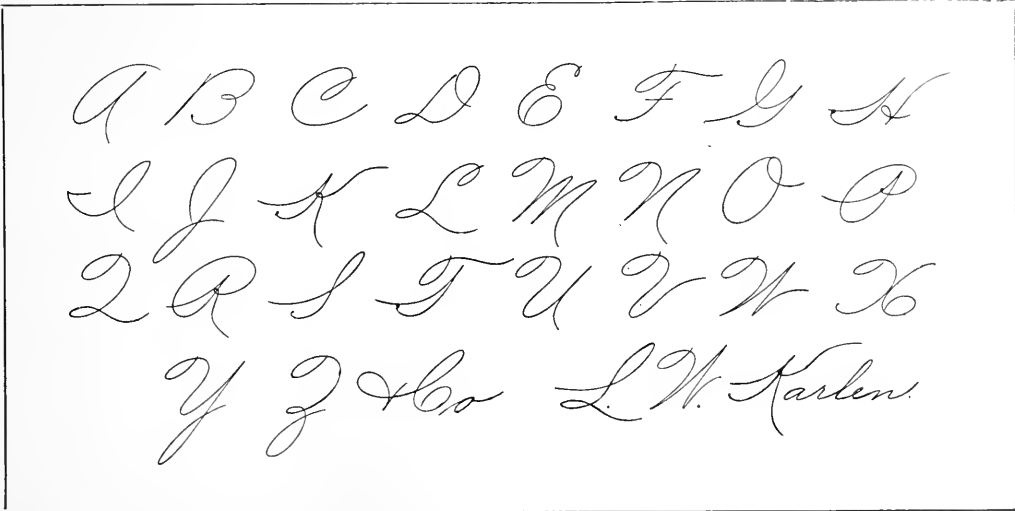 A B C D E F G H
I J K L M N O P
Q R S T U V W X
Y Z & Co L. W. Karlen.